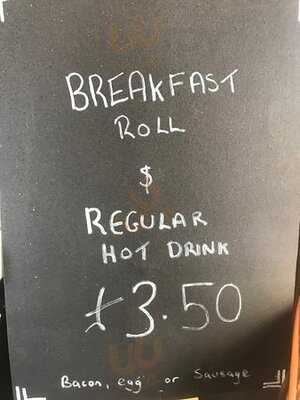 BREAKFAST
ROLL
$
REGULAR
HOT DRINK
£3.50
Bacon, egg or Sausage